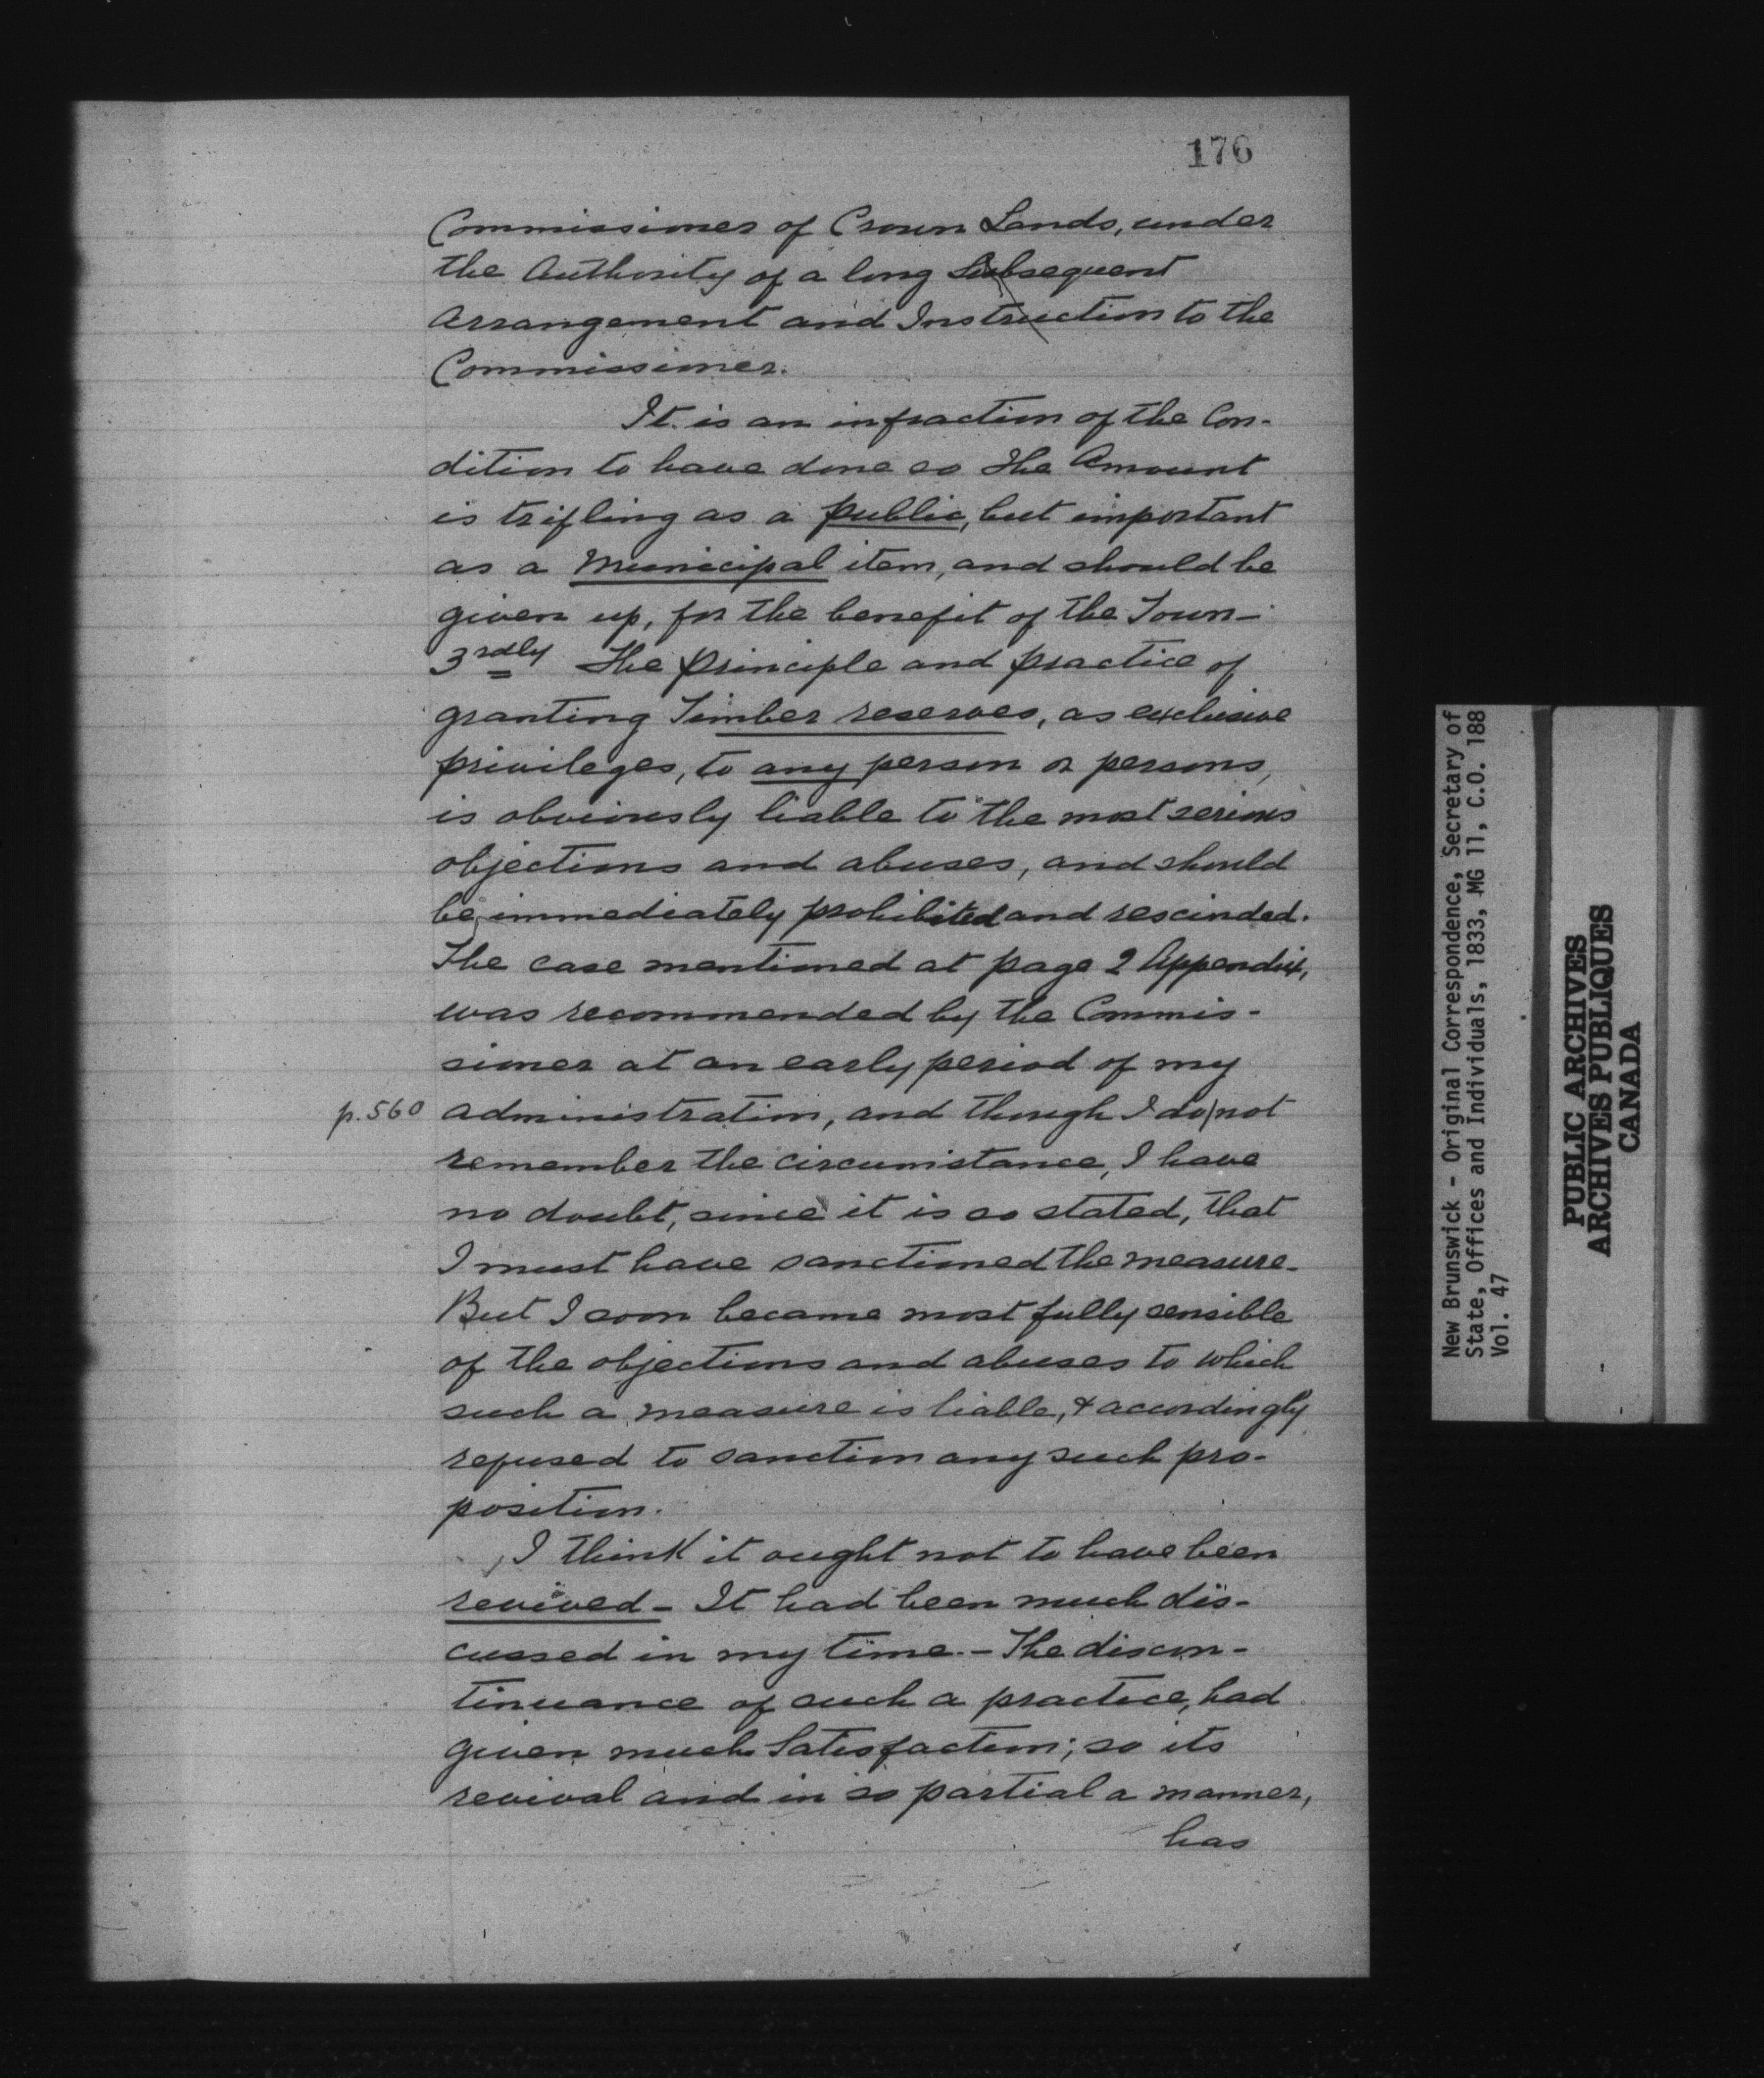 176
Commissioner of Crown Lands, under
the Authority of a long Subsequent
Arrangement and Instruction to the
Commissioner.
It is an infraction of the Con-
dition to have done so The Amount
is trifling as a public, but important
as a Municipal item, and should be
given up, for the benefit of the Town-
3rdly The principle and practice of
granting Timber reserves, as exclusive
privileges, to any person or persons,
is obviously liable to the most serious
objections and abuses, and should
be immediately prohibited and rescinded.
The case mentioned at page 2 Appendix,
was recommended by the Commis-
sioner at an early period of my
p.560 administration, and though I do|not
remember the circumstance, I have
no doubt, since it is so stated, that
I must have sanctioned the measure-
But I soon became most fully sensible
of the objections and abuses to which
such a measure is liable, & accordingly
refused to sanction any such pro-
position.
I think it ought not to have been
revived - It had been much dis-
cussed in my time. - The discon-
tinuance of such a practice, had
given much Satisfaction; so its
revival and in so partial a manner,
has
New Brunswick - Original Correspondence, Secretary of
State, Offices and Individuals, 1833, MG 11, C.O. 188
Vol. 47
PUBLIC ARCHIVES
ARCHIVES PUBLIQUES
CANADA